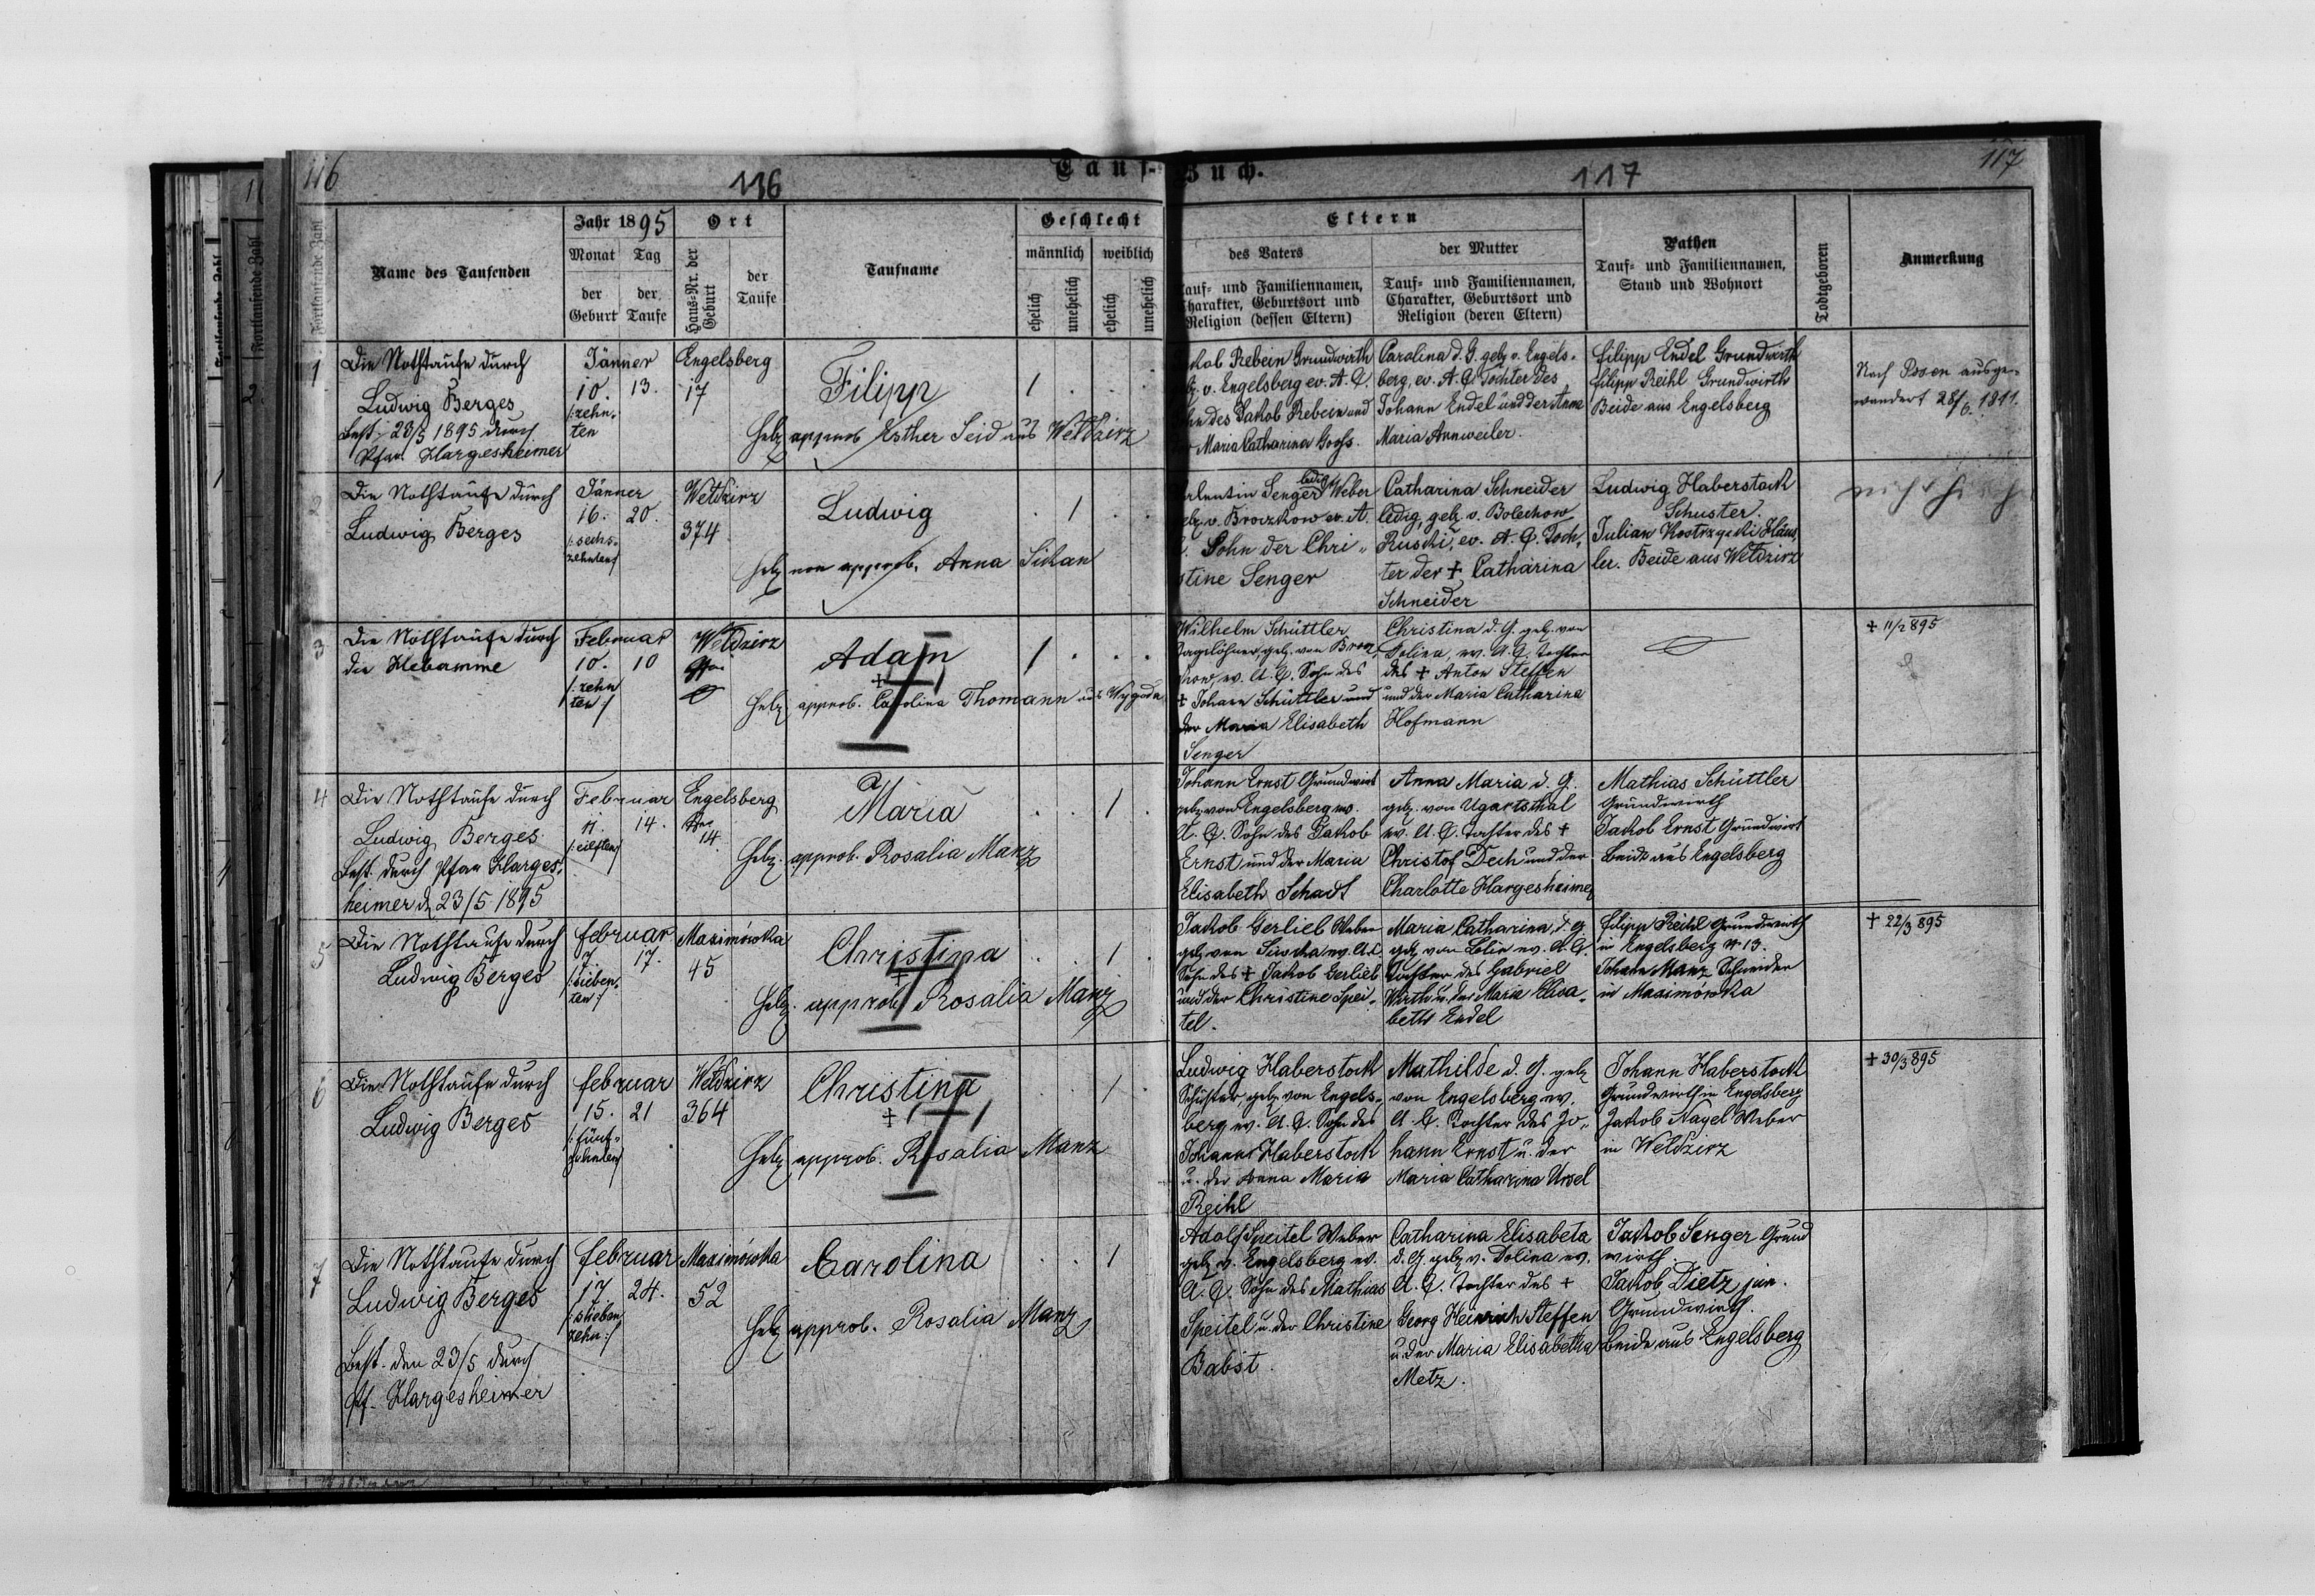 116
136
Tauf-Buch.
117
117
Fortlaufende Zahl
Name des Taufenden
Jahr 1895
Monat Tag
der Geburt
der Taufe
Ort
Haus-Nr. der Geburt
der Taufe
Taufname
Geschlecht
männlich weiblich
ehelich
unehelich
ehelich
unehelich
Eltern
des Vaters
Tauf- und Familiennamen,
Charakter, Geburtsort und
Religion (dessen Eltern)
der Mutter
Tauf- und Familiennamen,
Charakter, Geburtsort und
Religion (deren Eltern)
Pathen
Tauf- und Familiennamen,
Stand und Wohnort
Todtgeboren
Anmerkung
1
Die Nothtaufe durch
Ludwig Berges
Best. 23/5 1895 durch
Pfar. Hargesheimer
Jänner
10. 13.
/:zehn-
ten
Engelsberg
17
Filipp
1 . . .
Heb. approb. Esther Seid aus Wełdzirz
Jakob Rebein Grundwirth
v. Engelsberg ev. A. C.
des Jakob Rebein und
Maria Catharina Gross.
Carolina d. G. geb. v. Engels-
berg, ev. A. C. Tochter des
Johann Endel und der Anna
Maria Annweiler.
Filipp Endel Grundwirth
Filipp Reihl Grundwirth
Beide aus Engelsberg
Nach Posen ausge-
wandert 28/6. 1911.
2
Die Nothtaufe durch
Ludwig Berges
Jänner
16. 20.
/:sechs-
zehnten/
Wełdzirz
374
Ludwig
. 1 . .
Heb. non approb. Anna Sikan
ledig
Valentin Senger Weber
geb. v. Broczkow ev. A.
C. Sohn der Chri-
stine Senger
Catharina Schneider
ledig, geb. v. Bolechow
Ruski, ev. A. C. Toch-
ter der + Catharina
Schneider
Ludwig Haberstock
Schuster.
Julian Kostrzycki Häus-
ler. Beide aus Wełdzirz
3
Die Nothtaufe durch
die Hebamme
Februar
10. 10
/:zehn
ten:/
Wełdzirz
Adam
+
1 . . .
Heb. approb. Carolina Thomann aus Wygoda
Wilhelm Schüttler
Tagelöhner, geb. von Brocz-
kow ev. A. C. Sohn des
+ Johann Schüttler und
der Maria Elisabeth
Senger
Christina d. G. geb. von
Dolina, ev. A. C. Tochter
des + Anton Steffen
und der Maria Catharina
Hofmann
+ 11/2 895
4
Die Nothtaufe durch
Ludwig Berges
Best. durch Pfar Harges-
heimer d. 23/5 1895
Februar
11. 14.
/:eilften/
Engelsberg
Nro
14
Maria
. . 1 .
Heb. approb. Rosalia Manz
Johann Ernst Grundwirt
geb. von Engelsberg ev.
A. C. Sohn des Jakob
Ernst und der Maria
Elisabeth Schadt
Anna Maria d. G.
geb. von Ugartsthal
ev. A. C. Tochter des +
Christof Dech und der
Charlotte Hargesheimer
Mathias Schüttler
Grundwirth
Jakob Ernst Grundwirt
Beide aus Engelsberg
5
Die Nothtaufe durch
Ludwig Berges
Februar
7. 17.
/:sieben-
ten:/
Maximówka
45
Christina
+
. . 1 .
Heb. approb. Rosalia Manz
Jakob Gerlieb Weber
geb. von ev. A. C.
Sohn des + Jakob Gerlieb
und der Christine Spei-
tel.
Maria Catharina, d. G.
geb. von ev. A. C.
Tochter des Gabriel
Wirth u. der Maria Elisa-
beth Endel
Filipp Reihl Grundwirth
in Engelsberg N 13.
Johann Manz Schneider
in Maximówka
+ 22/3 895
6
Die Nothtaufe durch
Ludwig Berges
Februar
15. 21
/:fünf-
zehnten/
Wełdzirz
364
Christina
+
. 1 .
Heb. approb. Rosalia Manz
Ludwig Haberstock
Schuster geb. von Engels-
berg ev. A. C. Sohn des
Johann Haberstock
u. der Anna Maria
Reihl
Mathilde d. G. geb.
von Engelsberg ev.
A. C. Tochter des Jo-
hann Ernst u. der
Maria Catharina Ursel
Johann Haberstock
Grundwirth in Engelsberg
Jakob Nagel Weber
in Weldzirz
+ 30/3 895
7
Die Nothtaufe durch
Ludwig Berges
Best. den 23/5 durch
Pf. Hargesheimer
Februar
17. 24.
/:sieben
zehn:/
Maximówka
52
Carolina
. . 1
Heb. approb. Rosalia Manz
Adolf Speitel Weber
geb. v. Engelsberg ev.
A. C. Sohn des Mathias
Speitel u. der Christine
Babst.
Catharina Elisabeta
d. G. geb. v. Dolina ev.
A. C. Tochter des +
Georg Heinrich Steffen
u. der Maria Elisabetha
Metz.
Jakob Senger Grund
wirth
Jakob Dietz jun.
Grundwirth.
Beide aus Engelsberg